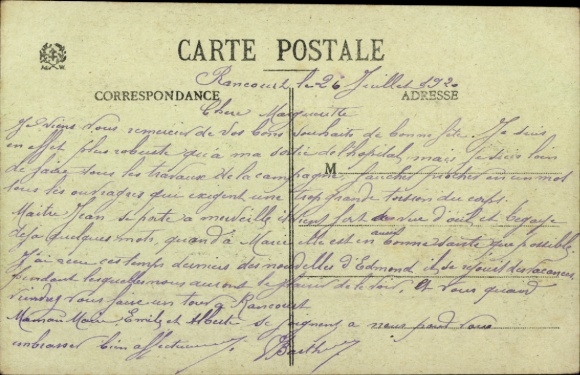 CARTE POSTALE
Rancourt le 26 Juillet 1920
CORRESPONDANCE
ADRESSE
Chère Marguerite
Je viens vous remercier de vos bons souhaits de bonne fête. Je suis
en effet plus robuste qu'à ma sortie de l'hopital, mais je suis loin
M
de faire tous les travaux de la campagne, faucher piocher en un mot
tous les ouvrages qui exigent une trop grande torsion du corps.
Maître Jean se porte à merveille, il vient fort à vue d'œil et begaye
déjà quelques mots, quand à Marie elle est en aussi bonne santé que possible,
J'ai reçu ces temps derniers des nouvelles d'Edmond il se réjouit des vacances
pendant lesquelles nous aurons le plaisir de le voir. Et vous quand
viendrez vous faire un tour à Rancourt
Maman Marie Emile et Albert se joignent à nous pour vous
embrasser bien affectueusement